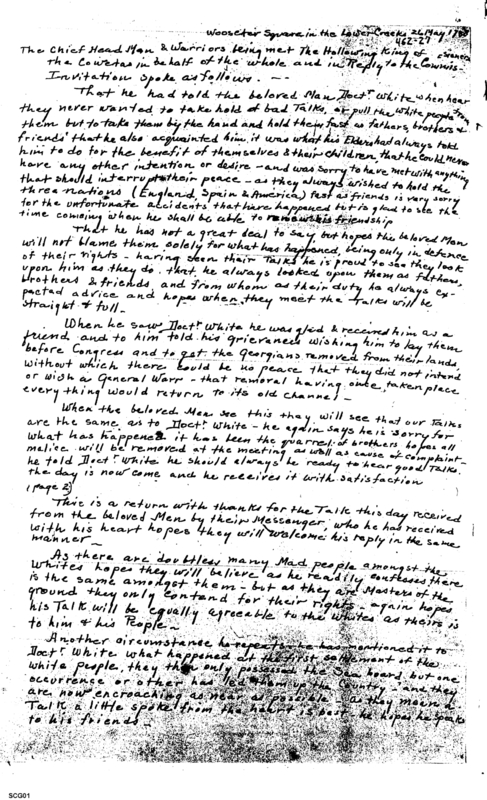 Wooseter Square in the Lower Creeks 26 May 1788
462-27
The Chief Head Man & Warriors being met The Hollowing King of
The Cowetas in behalf of the whole and in Reply to the Commis-sioners
Invitation spoke as follows. —
That he had told the beloved Man Doctr. White when hear
they never wanted to take hold of bad Talks, or pull the white people from
them but to take them by the hand and hold them fast as fathers, brothers &
friends that he also acquainted him, it was what his Elders had always told
him to do for the benefit of themselves & their children, that he could never
have any other intention or desire - and was sorry to have met with anything
that should interrupt their peace - as they always wished to hold the
three nations (England, Spain & America) fast as friends is very sorry
for the unfortunate accidents that have happened but is glad to see the
time coming when he shall be able to renew his friendship
That he has not a great deal to say but hopes the beloved Man
will not blame them solely for what has happened, being only in defence
of their rights - having seen their Talks he is proud to see they look
upon him as they do. that he always looked upon them as fathers,
brothers & friends, and from whom as their duty he always ex-
pected advice and hopes when they meet the Talks will be
straight & full -
When he saw Doctr. White he was gled & received him as a
friend and to him told his grievances wishing him to lay them
before Congress and to get the Georgians removed from their lands,
without which there could be no peace that they did not intend
or wish a General Warr - that removal having once taken place
everything would return to its old channel -
When the beloved Men see this they will see that our Talks
are the same as to Doctr. White - he again says he is sorry for
what has happened it has been the quarrel of brothers hopes all
malice will be removed at the meeting as well as cause of complaint -
he told Doctr. White he should always be ready to hear good Talks.
the day is now come and he receives it with satisfaction
(page 2)
This is a return with thanks for the Talk this day received
from the beloved Men by their Messenger, who he has received
with his heart hopes they will welcome his reply in the same
manner -
As there are doubtless many Mad people amongst the
Whites hopes they will believe as he readily confesses there
is the same amongst them - but as they are Masters of the
ground they only contend for their rights - again hopes
his Talk will be equally agreeable to the Whites as theirs is
to him & his People -
Another circumstance he repeats - he has mentioned it to
Doct. White what happened at the first settlement of the
white people, they then only possessed the Sea board, but one
occurrence or other has led them up the Country - and they
are now encroaching as near as possible - as they mean a
Talk a little spoke from the heart is best - he hopes he speaks
to his friends -
SCG01